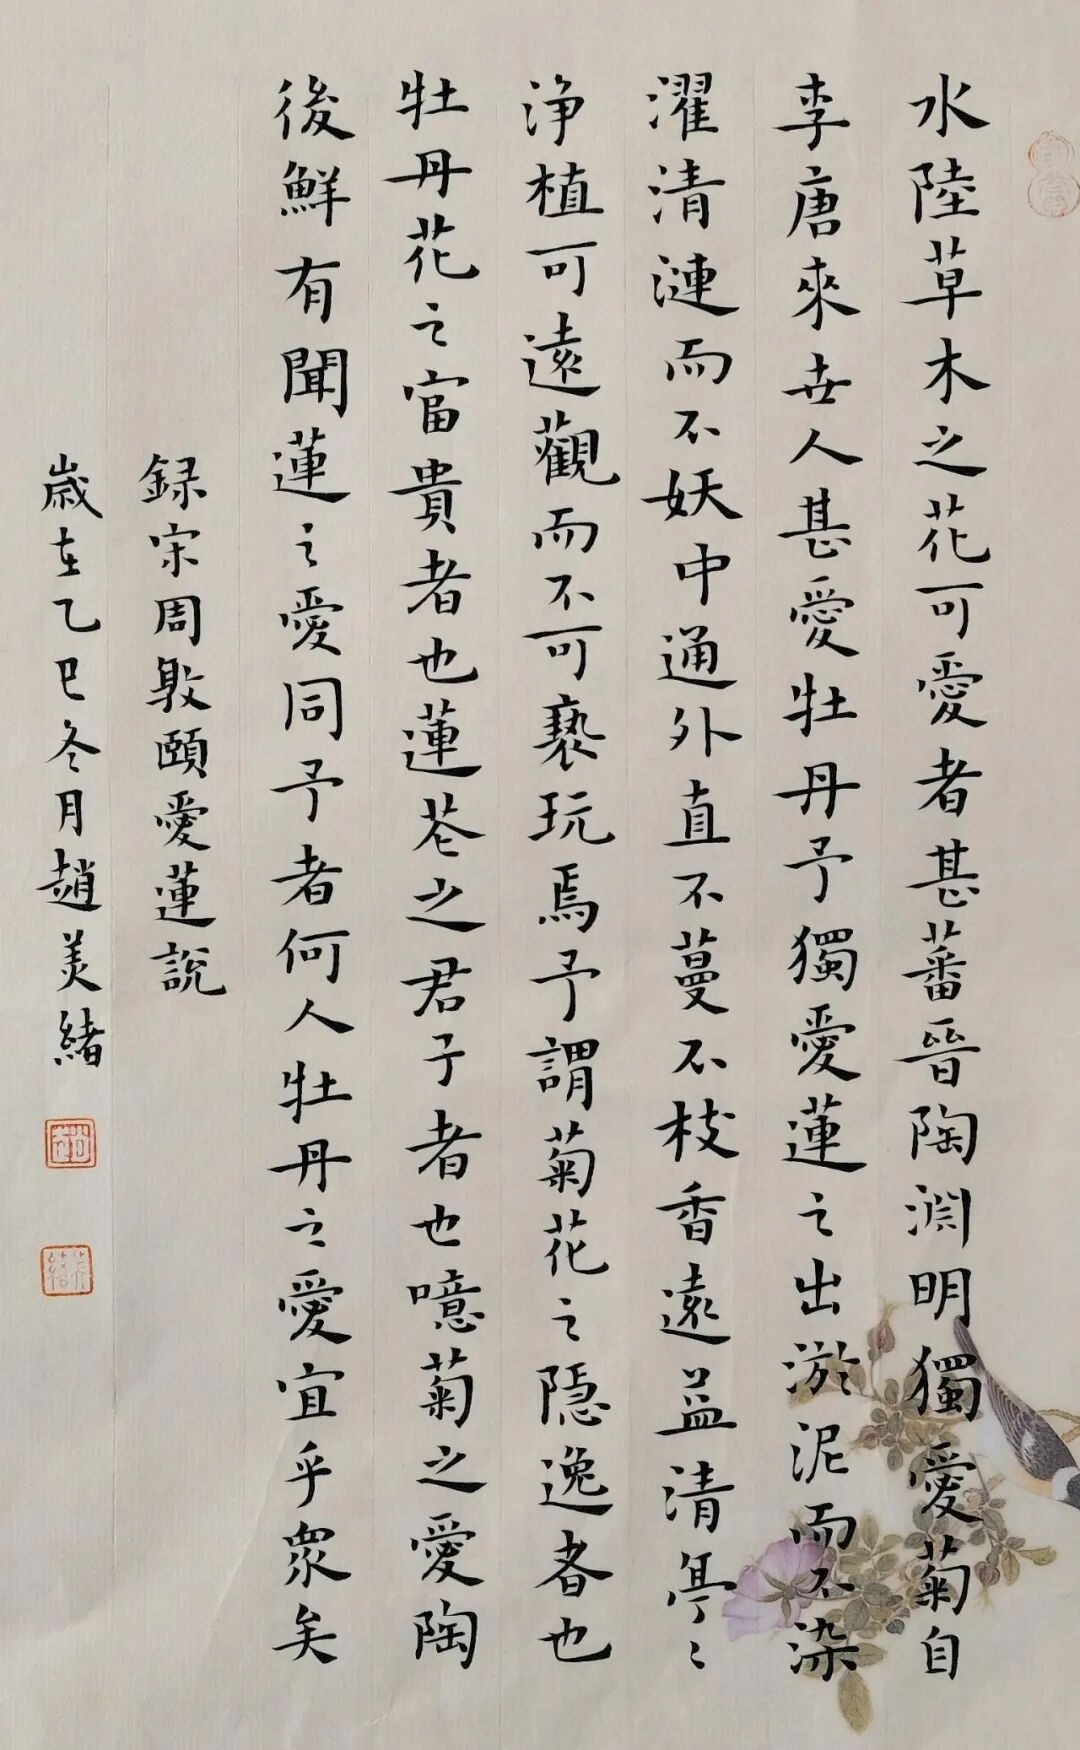 水陸草木之花可愛者甚蕃晉陶淵明獨愛菊自
李唐來世人甚愛牡丹予獨愛蓮之出淤泥而不染
濯清漣而不妖中通外直不蔓不枝香遠益清亭〻
淨植可遠觀而不可褻玩焉予謂菊花之隱逸者也
牡丹花之富貴者也蓮花之君子者也噫菊之愛陶
後鮮有聞蓮之愛同予者何人牡丹之愛宜乎眾矣
録宋周敦頤愛蓮說
歲在乙巳冬月趙美緒